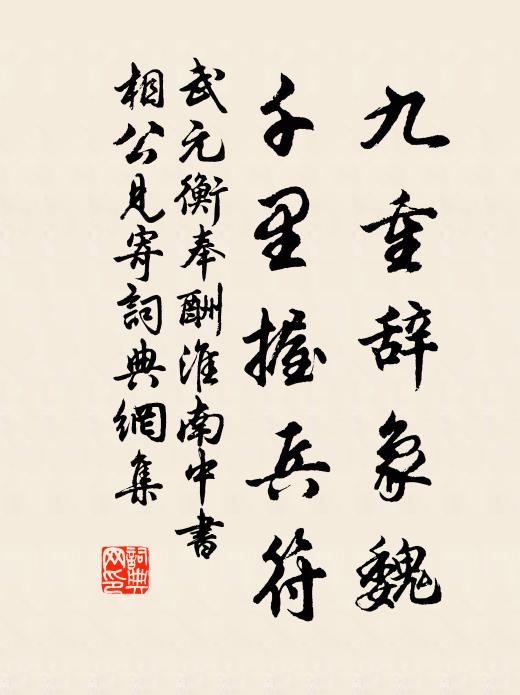 九重辞象魏
千里握兵符
武元衡奉酬淮南中書
相公見寄詞典網集
詞典
网印